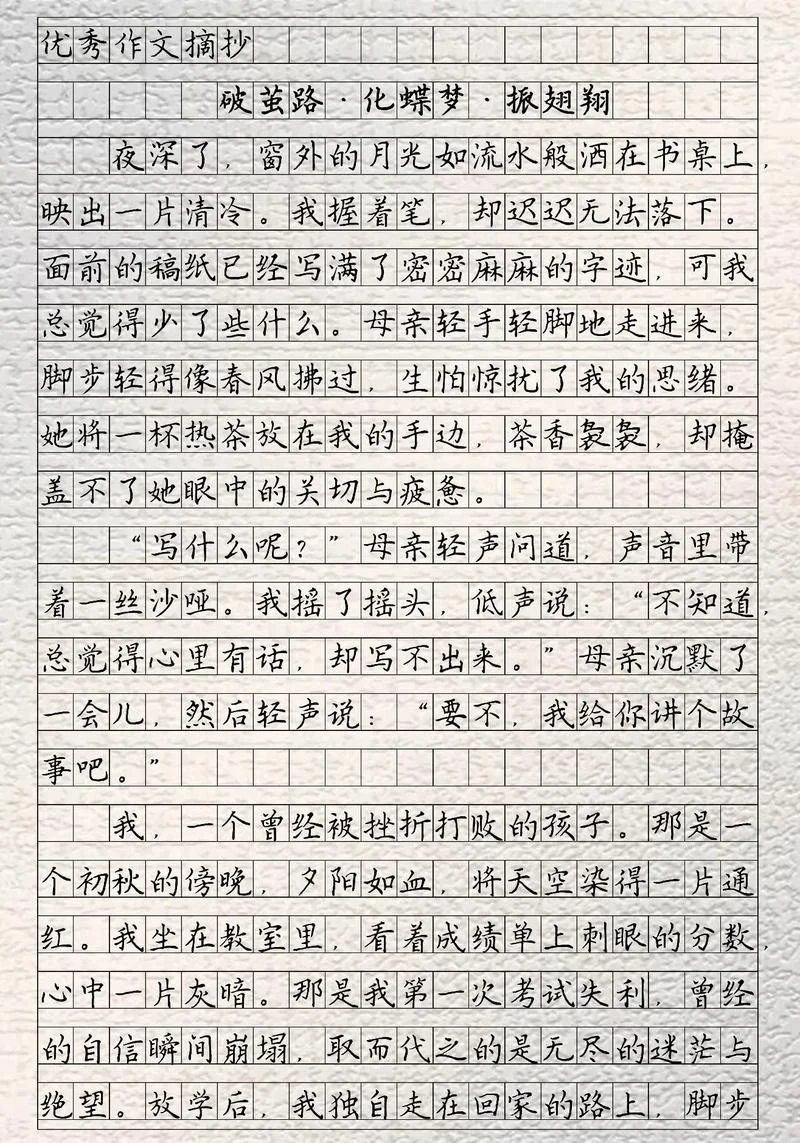 优秀作文摘抄
破茧路·化蝶梦·振翅翔
夜深了，窗外的月光如流水般洒在书桌上，
映出一片清冷。我握着笔，却迟迟无法落下。
面前的稿纸已经写满了密密麻麻的字迹，可我
总觉得少了些什么。母亲轻手轻脚地走进来，
脚步轻得像春风拂过，生怕惊扰了我的思绪。
她将一杯热茶放在我的手边，茶香袅袅，却掩
盖不了她眼中的关切与疲惫。
“写什么呢？”母亲轻声问道，声音里带
着一丝沙哑。我摇了摇头，低声说：“不知道，
总觉得心里有话，却写不出来。”母亲沉默了
一会儿，然后轻声说：“要不，我给你讲个故
事吧。”
我，一个曾经被挫折打败的孩子。那是一
个初秋的傍晚，夕阳如血，将天空染得一片通
红。我坐在教室里，看着成绩单上刺眼的分数，
心中一片灰暗。那是我第一次考试失利，曾经
的自信瞬间崩塌，取而代之的是无尽的迷茫与
绝望。放学后，我独自走在回家的路上，脚步